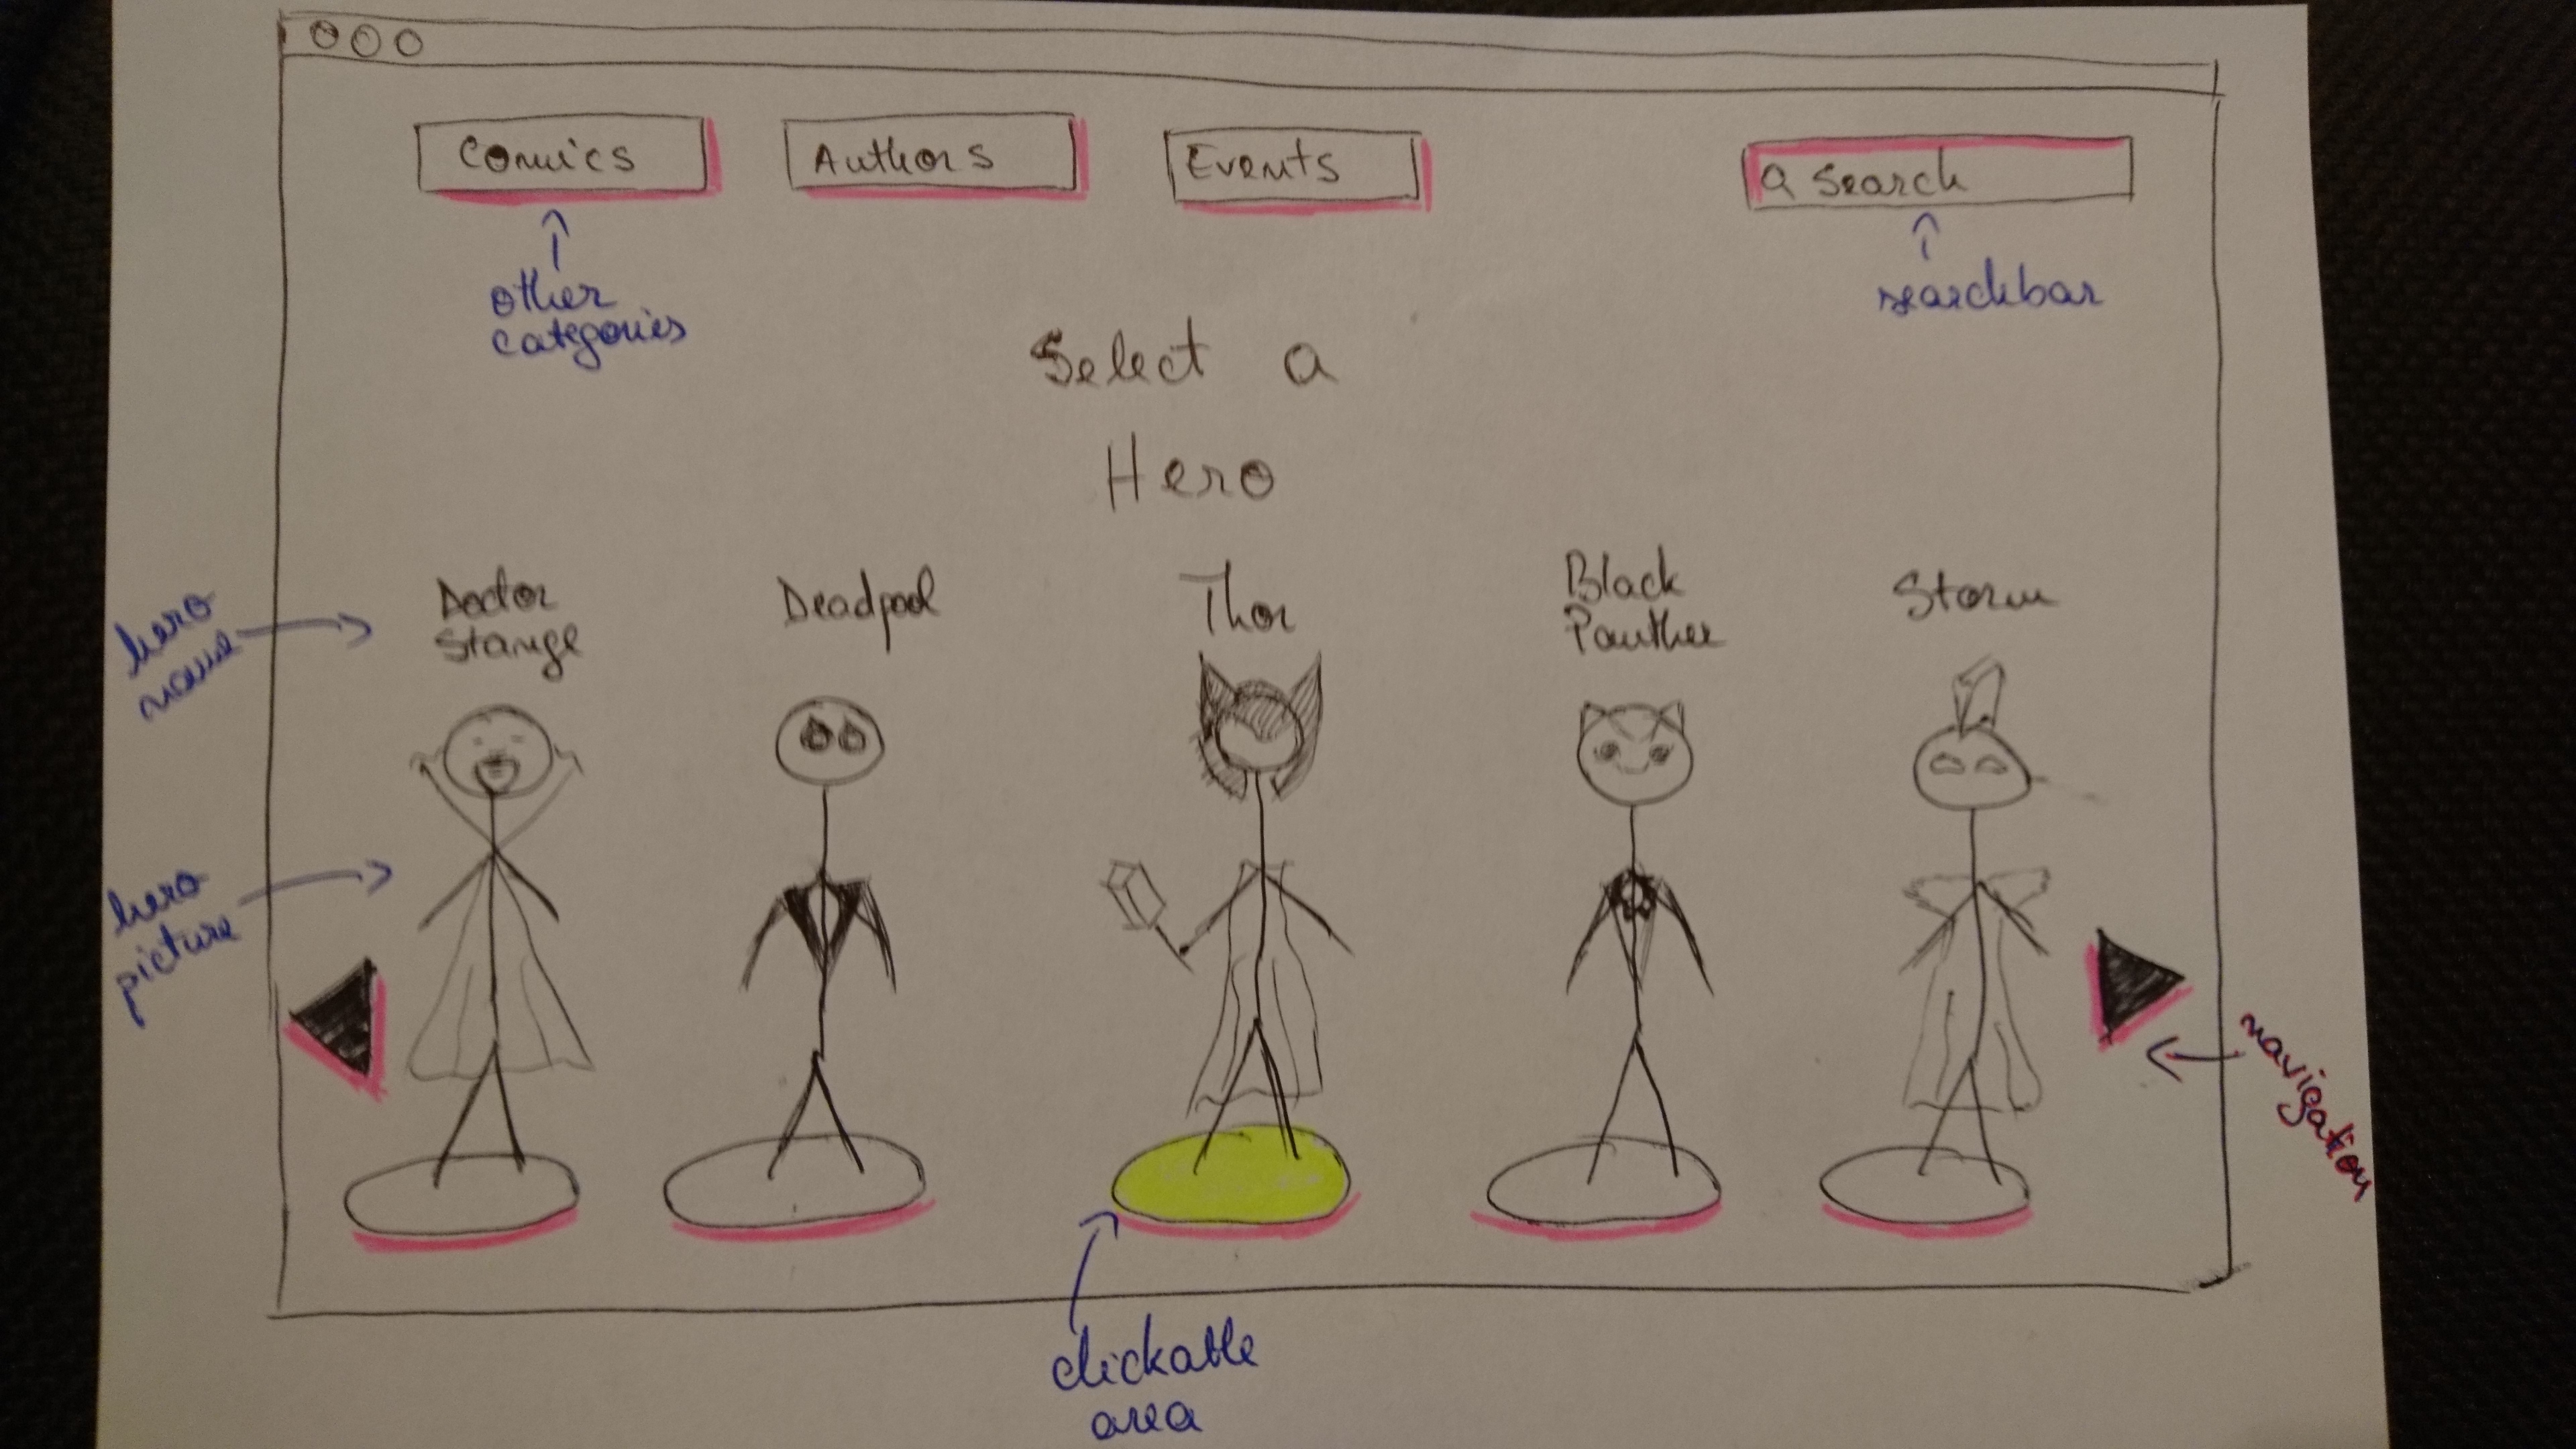 Comics
Authors
Events
Search
other
categories
searchbar
Select a
Hero
hero
name
Doctor
Stange
Deadpool
Thor
Black
Panther
Storm
hero
picture
navigation
clickable
area